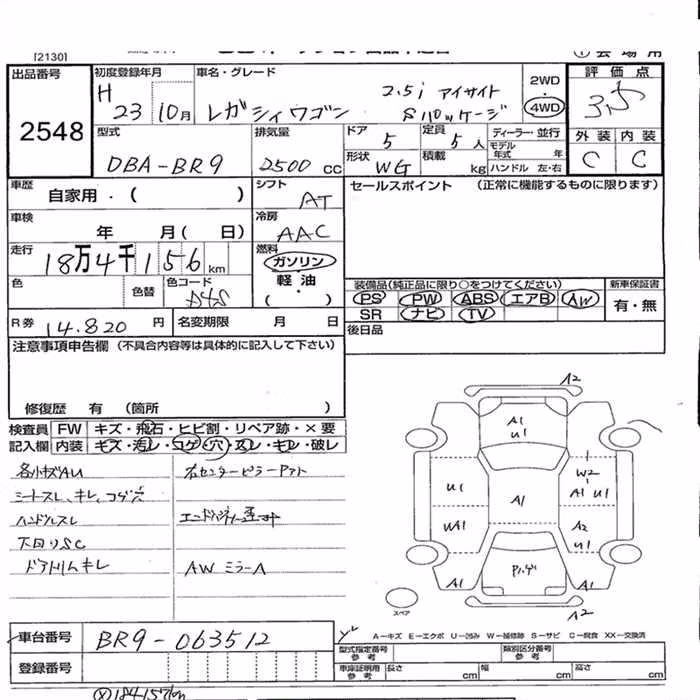 [2130]
出品番号
2548
初度登録年月
H 23 10月
車名・グレード
レガシィワゴン
2.5i アイサイト
Sパッケージ
2WD
4WD
評価点
3.5
外装 内装
C C
型式
DBA-BR9
排気量
2500 cc
ドア 5
定員 5人
形状 WG
積載 kg
ディーラー・並行
モデル年式 年
ハンドル 左・右
車歴
自家用・( )
シフト
AT
セールスポイント (正常に機能するものに限ります)
車検
年 月( 日)
冷房
AAC
走行
18万4千156km
燃料
ガソリン
軽油・
( )
色
色替
色コード
D4S
装備品(純正品に限り○をつけてください)
PS PW ABS エアB AW
SR ナビ TV
新車保証書
有・無
R券 14.820 円
名変期限 月 日
後日品
注意事項申告欄 (不具合内容等は具体的に記入して下さい)
修復歴 有 (箇所 )
検査員 FW キズ・飛石・ヒビ割・リペア跡・×要
記入欄 内装 キズ・汚レ・コゲ・穴・スレ・キレ・破レ
各小キズAU
シートスレ、キレ、コゲ穴
ハンドルスレ
下回りSC
ドアトリムキレ
右センターピラーアト
AWミラーA
A2
A1
U1
W2
U1
A1
A1 U1
WA1
A2
U1
A1
A1
A2
スペア
A-キズ E-エクボ U-凹み W-補修跡 S-サビ C-腐食 XX-交換済
車台番号 BR9-063512
登録番号
型式指定番号 参考
類別区分番号 参考
車庫証明用 参考
長さ cm
幅 cm
高さ cm
184157km